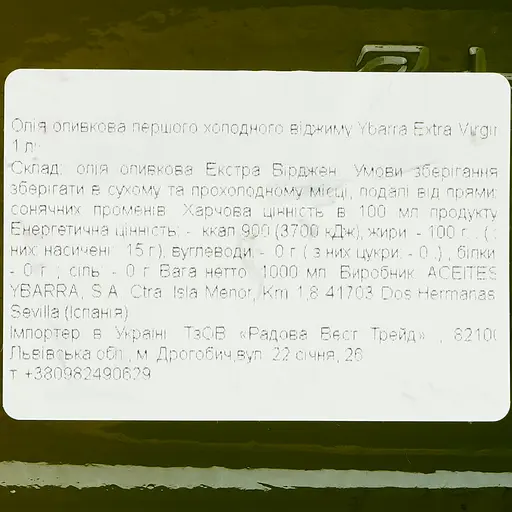 Олія оливкова першого холодного віджиму Ybarra Extra Virgin
1 л
Склад: олія оливкова Екстра Вірджен. Умови зберігання
зберігати в сухому та прохолодному місці, подалі від прямих
сонячних променів. Харчова цінність в 100 мл продукту
Енергетична цінність: - ккал 900 (3700 кДж), жири - 100 г. ( з
них насичені 15 г), вуглеводи - 0 г ( з них цукри - 0 ), білки
- 0 г ; сіль - 0 г Вага нетто 1000 мл Виробник ACEITES
YBARRA, S.A. Ctra. Isla Menor, Km 1,8 41703 Dos Hermanas
Sevilla (Іспанія)
Імпортер в Україні ТзОВ «Радова Вест Трейд» , 82100
Львівська обл., м. Дрогобич,вул. 22 січня, 26
т. +380982490629